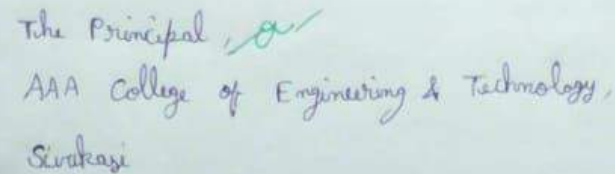 The Principal,
AAA College of Engineering & Technology,
Sivakasi